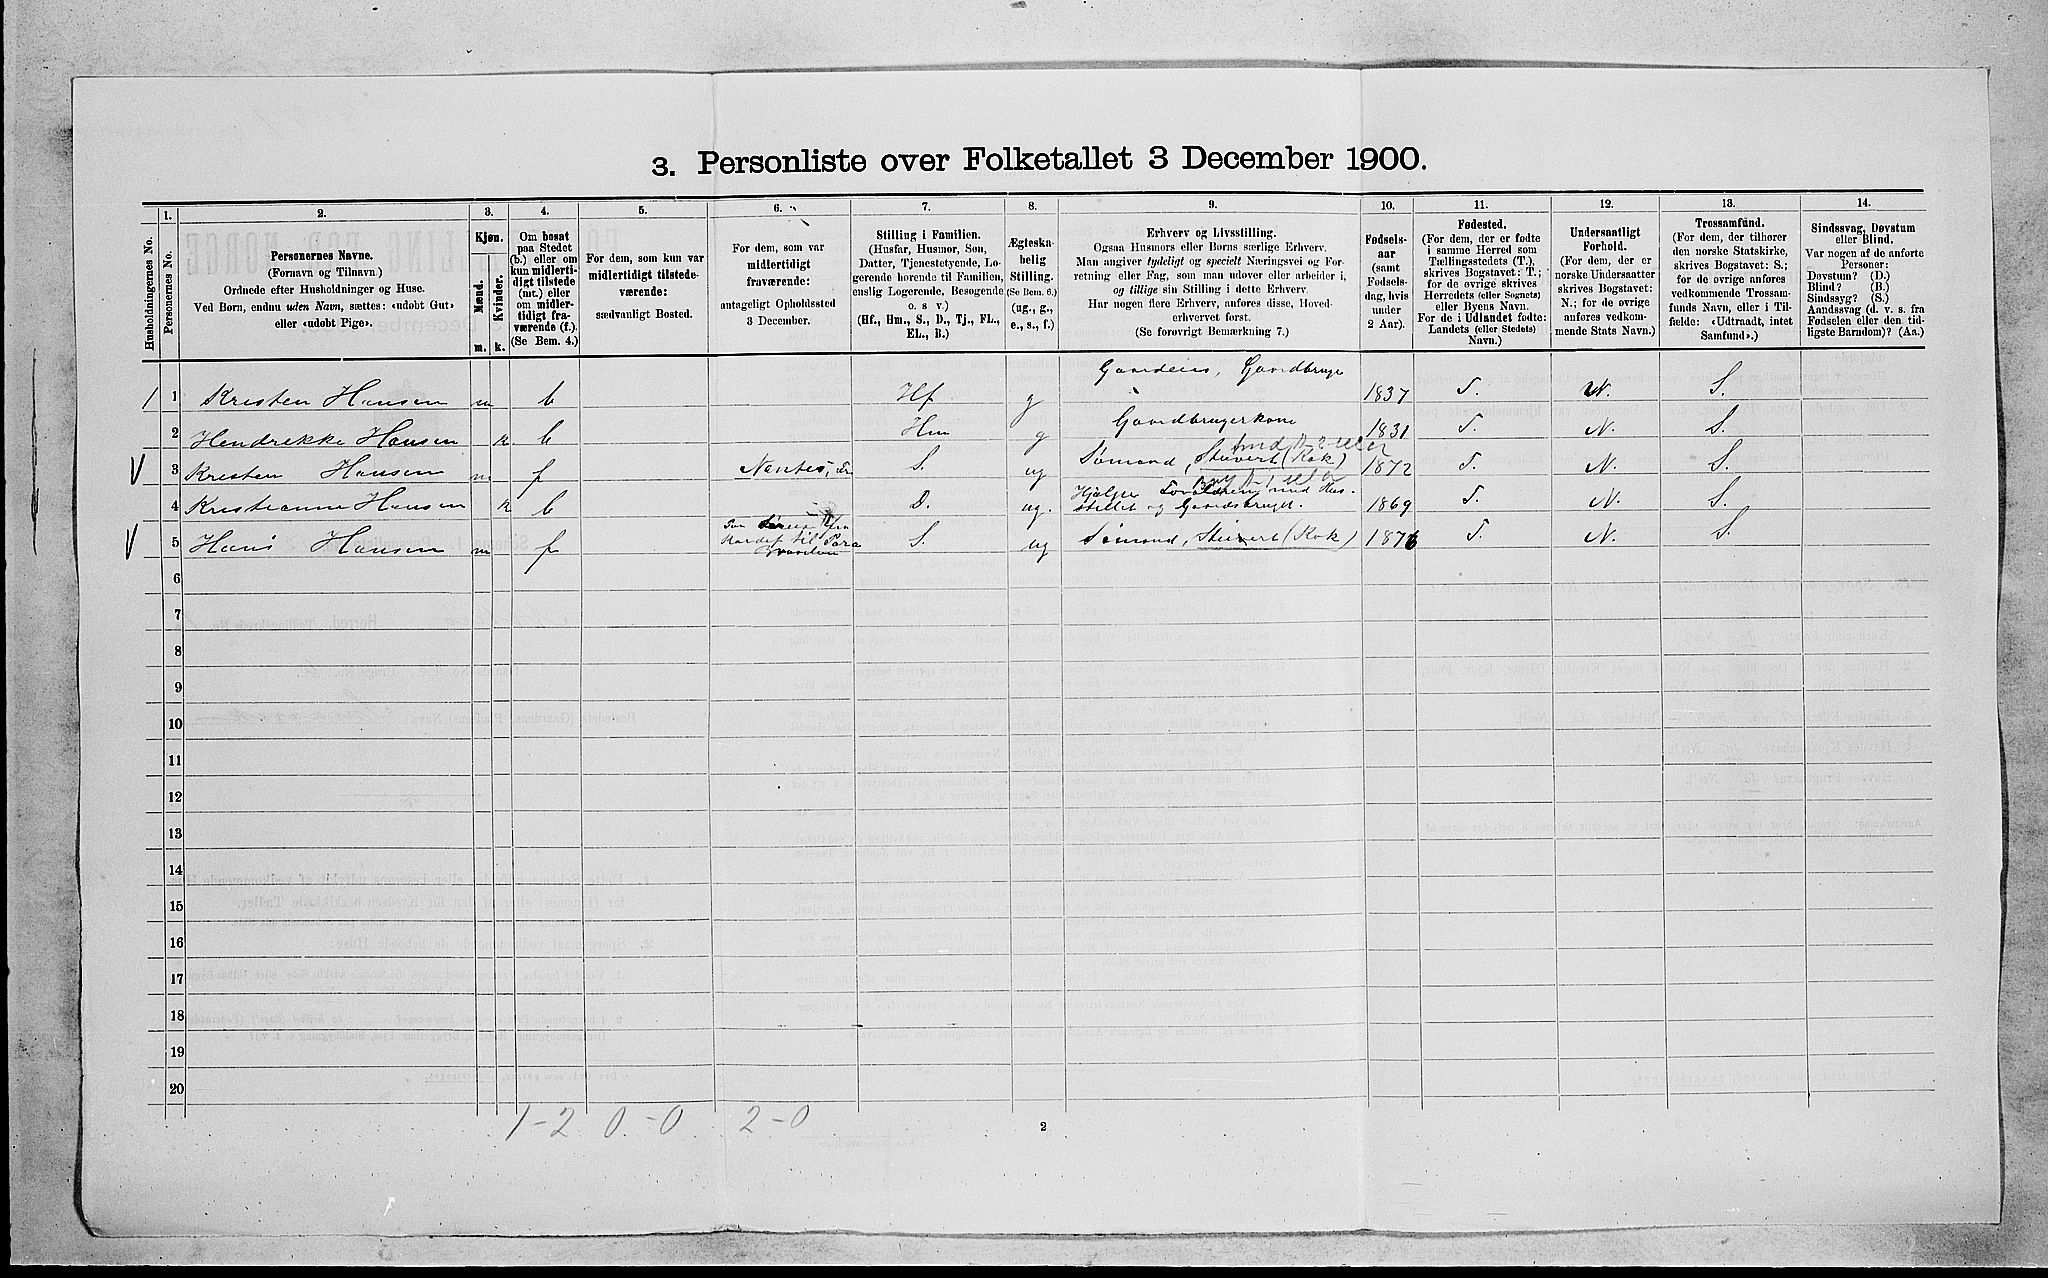 3. Personliste over Folketallet 3 December 1900.
1. 2. 3. 4. 5. 6. 7. 8. 9. 10. 11. 12. 13. 14.
Husholdningernes No.
Personernes No.
Personernes Navne.
(Fornavn og Tilnavn.)
Ordnede efter Husholdninger og Huse.
Ved Børn, endnu uden Navn, sættes: «udøbt Gut»
eller «udøbt Pige».
Kjøn.
Mænd.
Kvinder.
m. k.
Om bosat
paa Stedet
(b.) eller om
kun midlerti-
digt tilstede
(mt.) eller
om midler-
tidigt fra-
værende (f.).
(Se Bem. 4.)
For dem, som kun var
midlertidigt tilstede-
værende:
sædvanligt Bosted.
For dem, som var
midlertidigt
fraværende:
antageligt Opholdssted
3 December.
Stilling i Familien.
(Husfar, Husmor, Søn,
Datter, Tjenestetyende, Lo-
gerende hørende til Familien,
enslig Logerende, Besøgende
o. s v.)
(Hf., Hm., S., D., Tj., FL.,
EL., B.)
Ægteska-
belig
Stilling.
(Se Bem. 6.)
(ug., g.,
e., s., f.)
Erhverv og Livsstilling.
Ogsaa Husmors eller Børns særlige Erhverv.
Man angiver tydeligt og specielt Næringsvei og For-
retning eller Fag, som man udøver eller arbeider i,
og tillige sin Stilling i dette Erhverv.
Har nogen flere Erhverv, anføres disse, Hoved-
erhvervet først.
(Se forøvrigt Bemærkning 7.)
Fødsels-
aar
(samt
Fødsels-
dag, hvis
under
2 Aar).
Fødested.
(For dem, der er fødte
i samme Herred som
Tællingsstedets (T.),
skrives Bogstavet: T.;
for de øvrige skrives
Herredets (eller Sognets)
eller Byens Navn.
For de i Udlandet fødte:
Landets (eller Stedets)
Navn.)
Undersaatligt
Forhold.
(For dem, der er
norske Undersaatter
skrives Bogstavet:
N.; for de øvrige
anføres vedkom-
mende Stats Navn.)
Trossamfund.
(For dem, der tilhører
den norske Statskirke,
skrives Bogstavet: S.;
for de øvrige anføres
vedkommende Trossam-
funds Navn, eller i Til-
fælde: «Udtraadt, intet
Samfund».)
Sindssvag, Døvstum
eller Blind.
Var nogen af de anførte
Personer:
Døvstum? (D.)
Blind? (B.)
Sindssyg? (S.)
Aandssvag (d. v. s. fra
Fødselen eller den tid-
ligste Barndom)? (Aa.)
1 1 Kresten Hansen m b Hf g Gaardeier, Gaardbruge 1837 T. N. S.
2 Hendrekke Hansen k. b Hm g Gaardbrugerkone 1831 T. N. S.
V 3 Kresten Hansen m f Nantes, Fr S. ug Sømand, Stuvert (Kok) 1872 T. N. S.
4 Kristianne Hansen k b D. ug. Hjælper Forældrene med Hus-
stellet og Gaardsbruget. 1869 T. N. S.
V 5 Hans Hansen m f til Para S. ug Sømand, Stuvert (Kok) 1876 T. N. S.
6
7
8
9
10
11
12
13
14
15
16
17
18
19
20
1-2 0-0 2-0
2